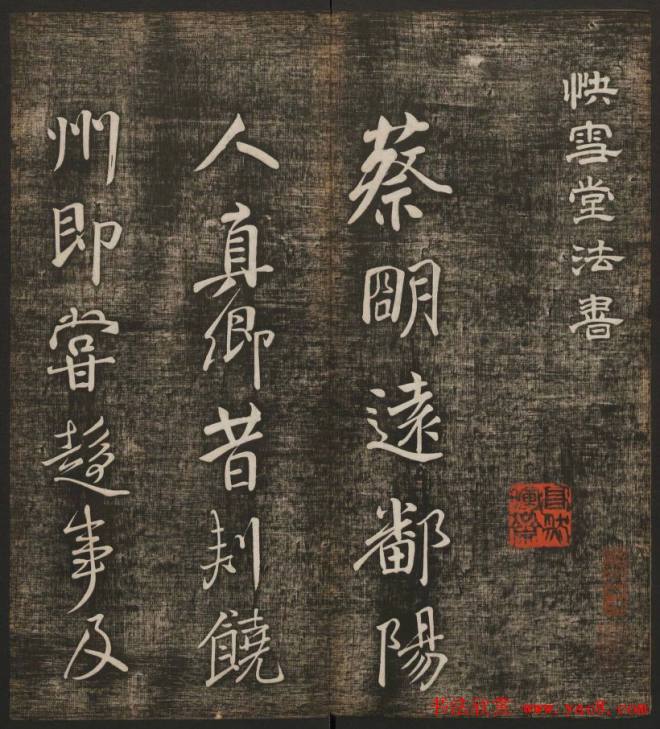 快雪堂法書
蔡朙遠鄱陽
人真卿昔刾饒
州即甞趍事及
书法欣赏 www.yac8.com